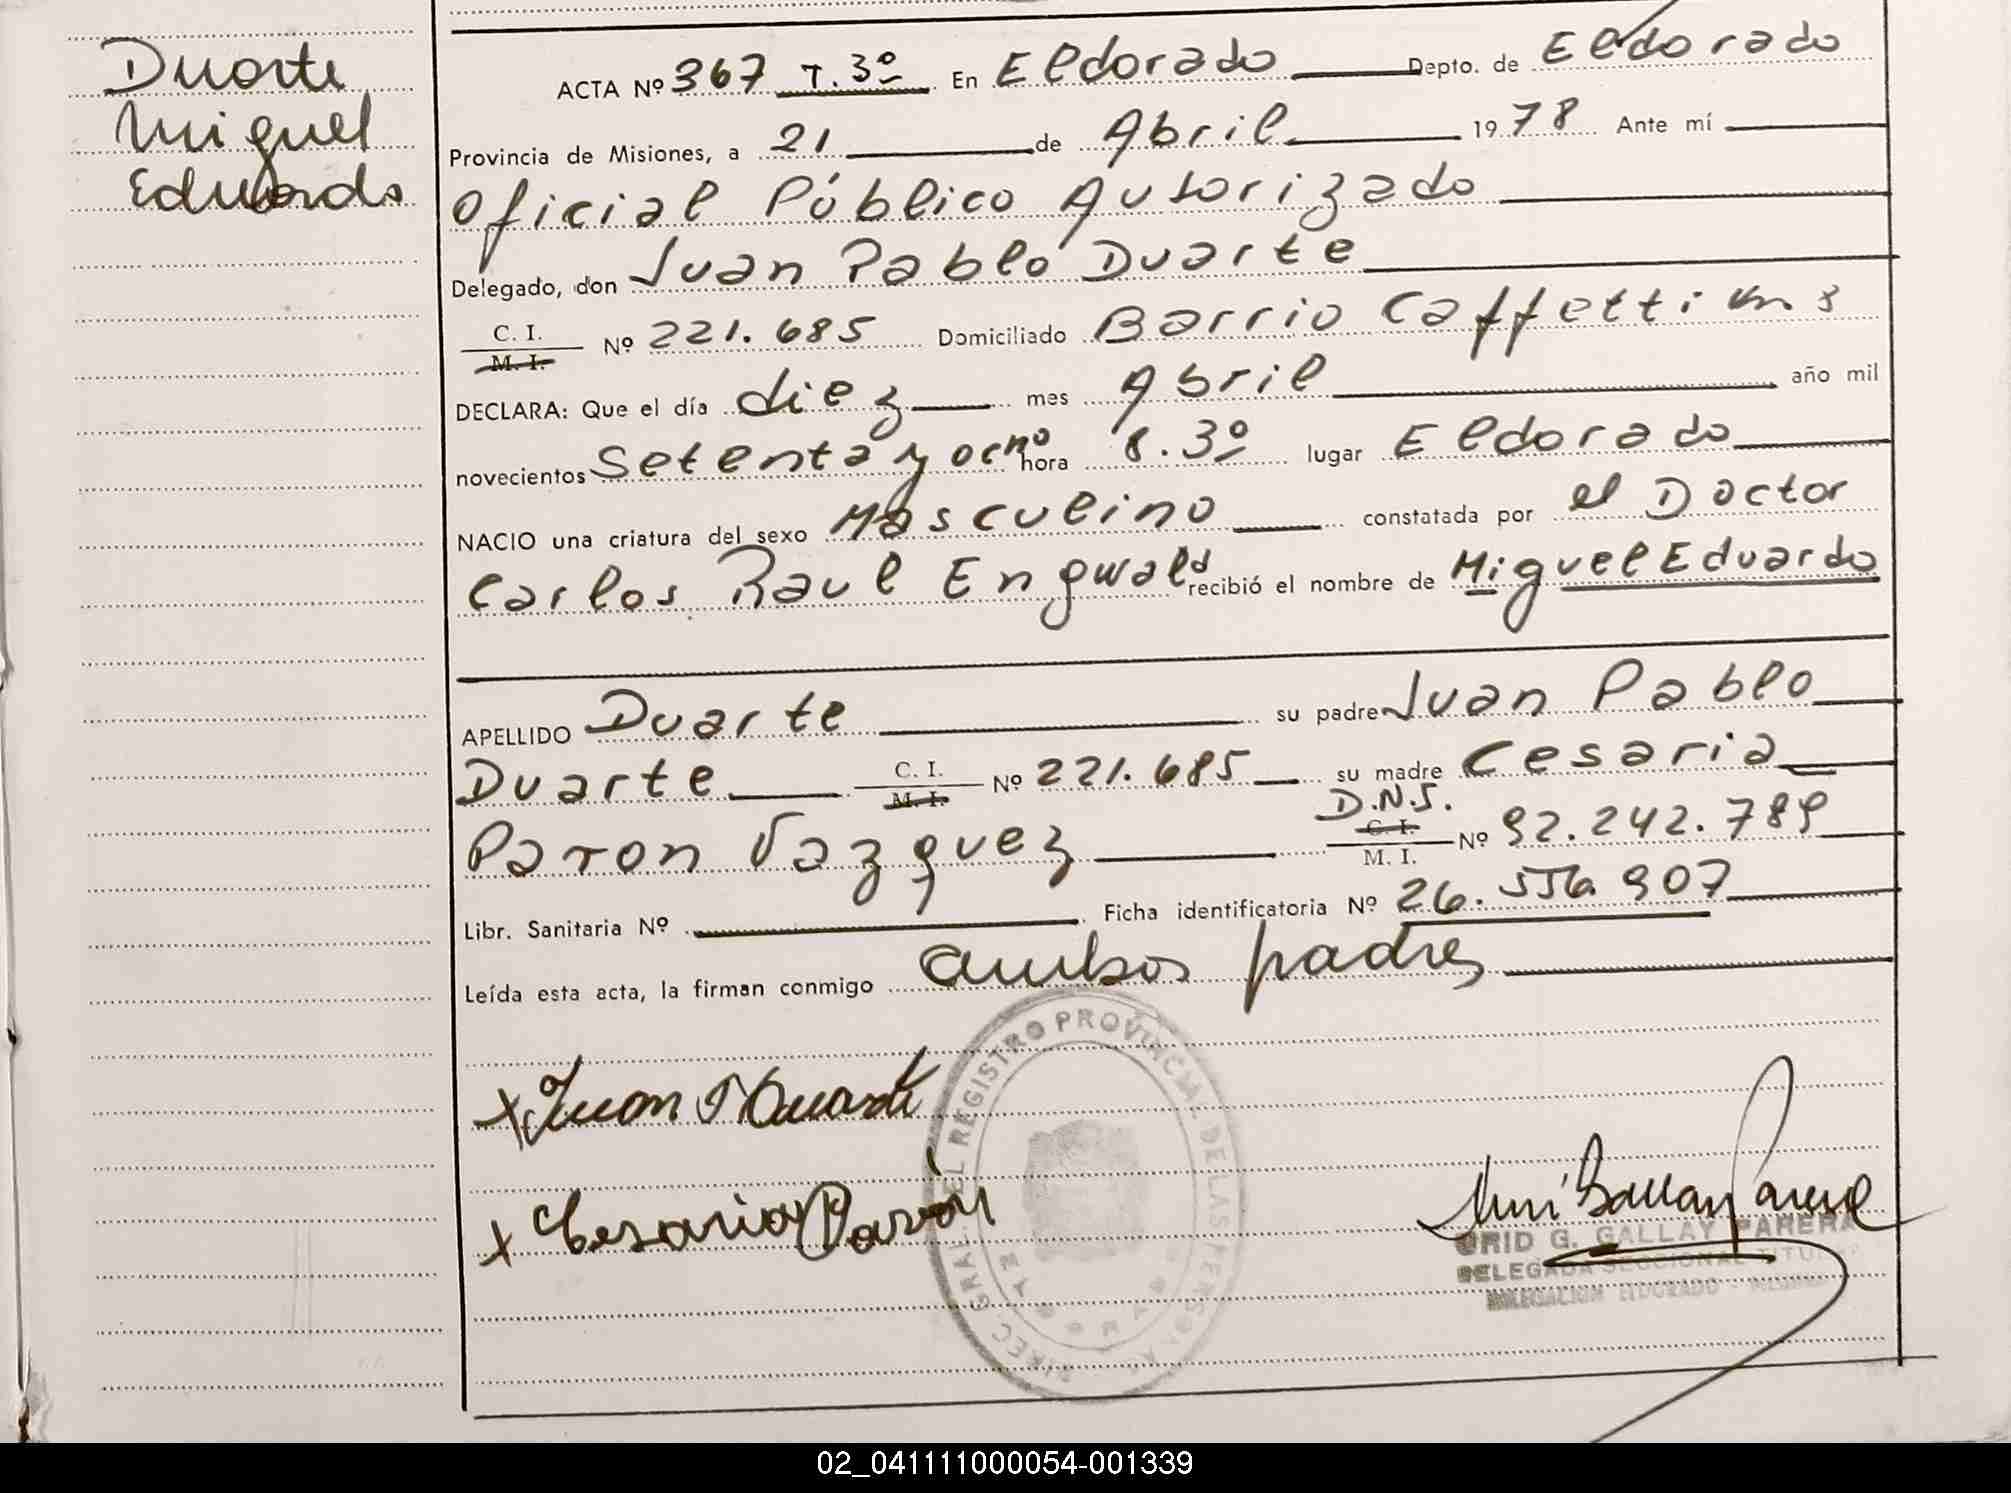 Duarte
Miguel
Eduardo
ACTA Nº 367 T. 3º En Eldorado Depto. de Eldorado
Provincia de Misiones, a 21 de Abril 1978 Ante mí
Oficial Público Autorizado
Delegado, don Juan Pablo Duarte
C. I.
M. I. Nº 221.685 Domiciliado Barrio Caffetti
DECLARA: Que el día diez mes Abril año mil
novecientos Setenta y ocho hora 8.3º lugar Eldorado
NACIO una criatura del sexo Masculino constatada por el Doctor
Carlos Raul Engwald recibió el nombre de Miguel Eduardo
APELLIDO Duarte su padre Juan Pablo
Duarte C. I. M. I. Nº 221.685 su madre Cesaria
Paron Vazquez D.N.I. C. I. M. I. Nº 92.242.789
Libr. Sanitaria Nº Ficha identificatoria Nº 26.556.907
Leída esta acta, la firman conmigo ambos padres
x Juan P Duarte
x Cesaria Parón
DIREC. GRAL. DEL REGISTRO PROVINCIAL DE LAS PERSONAS
GRID G. GALLAY PARERA
DELEGADA SECCIONAL TITULAR
DELEGACION ELDORADO - MISIONES
02_041111000054-001339